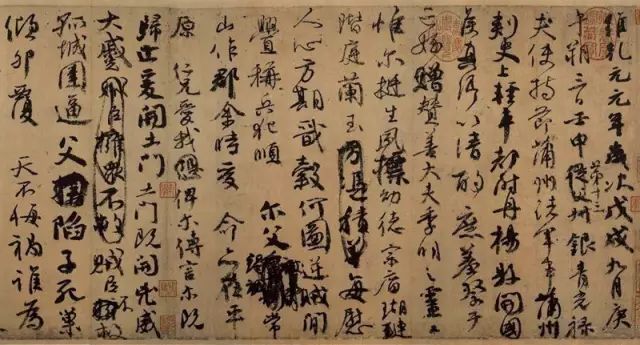 維乾元元年歲次戊戌九月庚
午朔三日壬申第十三從父銀青光祿
夫使持節蒲州諸軍事蒲州
刺史上輕車都尉丹楊縣開國
侯真卿以清酌庶羞祭于
亡姪贈贊善大夫季明之靈曰
惟爾挺生夙標幼德宗廟瑚璉
階庭蘭玉方憑積善每慰
人心方期戩穀何圖逆賊閒
釁稱兵犯順 爾父竭誠常
山作郡余時受 命亦在平
原 仁兄愛我恐俾爾傳言爾既
歸止爰開土門土門既開凶威
大蹙賊臣擁眾不救賊臣不救
孤城圍逼父陷子死巢
傾卵覆 天不悔禍誰為